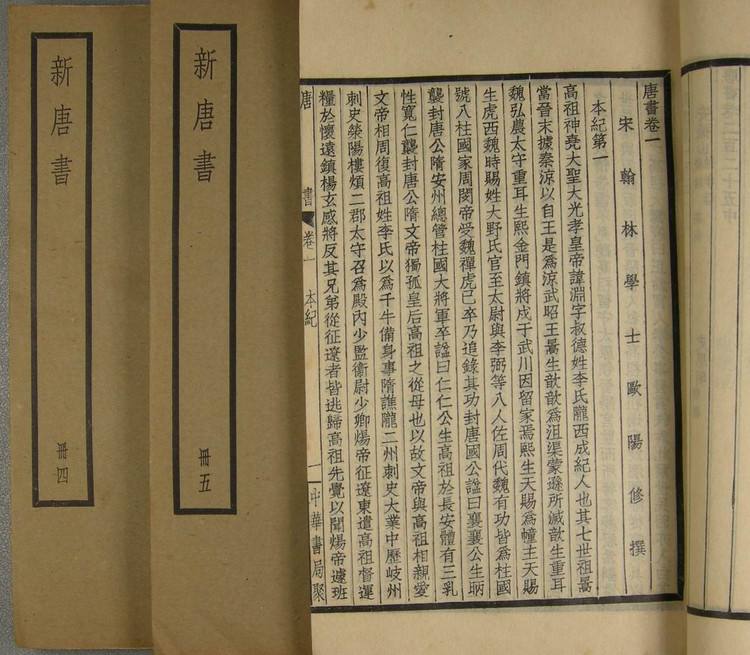 唐書卷一
宋翰林學士歐陽修撰
本紀第一
高祖神堯大聖大光孝皇帝諱淵字叔德姓李氏隴西成紀人也其七世祖暠
當晉末據秦涼以自王是爲涼武昭王暠生歆歆爲沮渠蒙遜所滅歆生重耳
魏弘農太守重耳生熙金門鎮將戍于武川因留家焉熙生天賜爲幢主天賜
生虎西魏時賜姓大野氏官至太尉與李弼等八人佐周代魏有功皆爲柱國
號八柱國家周閔帝受魏禪虎已卒乃追錄其功封唐國公諡曰襄襄公生昞
襲封唐公隋安州總管柱國大將軍卒諡曰仁仁公生高祖於長安體有三乳
性寬仁襲封唐公隋文帝獨孤皇后高祖之從母也以故文帝與高祖相親愛
文帝相周復高祖姓李氏以爲千牛備身事隋譙隴二州刺史大業中歷岐州
刺史滎陽樓煩二郡太守召爲殿內少監衞尉少卿煬帝征遼東遣高祖督運
糧於懷遠鎮楊玄感將反其兄弟從征遼者皆逃歸高祖先覺以聞煬帝遽班
唐書 卷一 本紀 一 中華書局聚
新唐書
冊五
新唐書
冊四